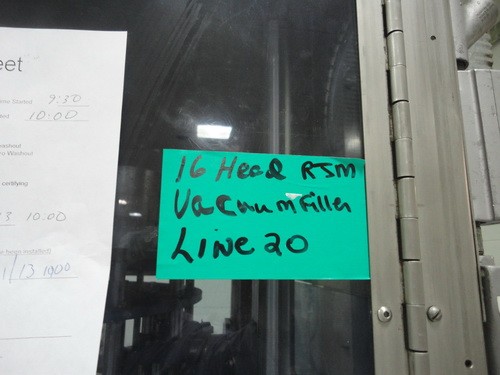 eet
9:30
10:00
certifying
3 10.00
1/13 1000
16 Head RJM
Vacuum Filler
Line 20